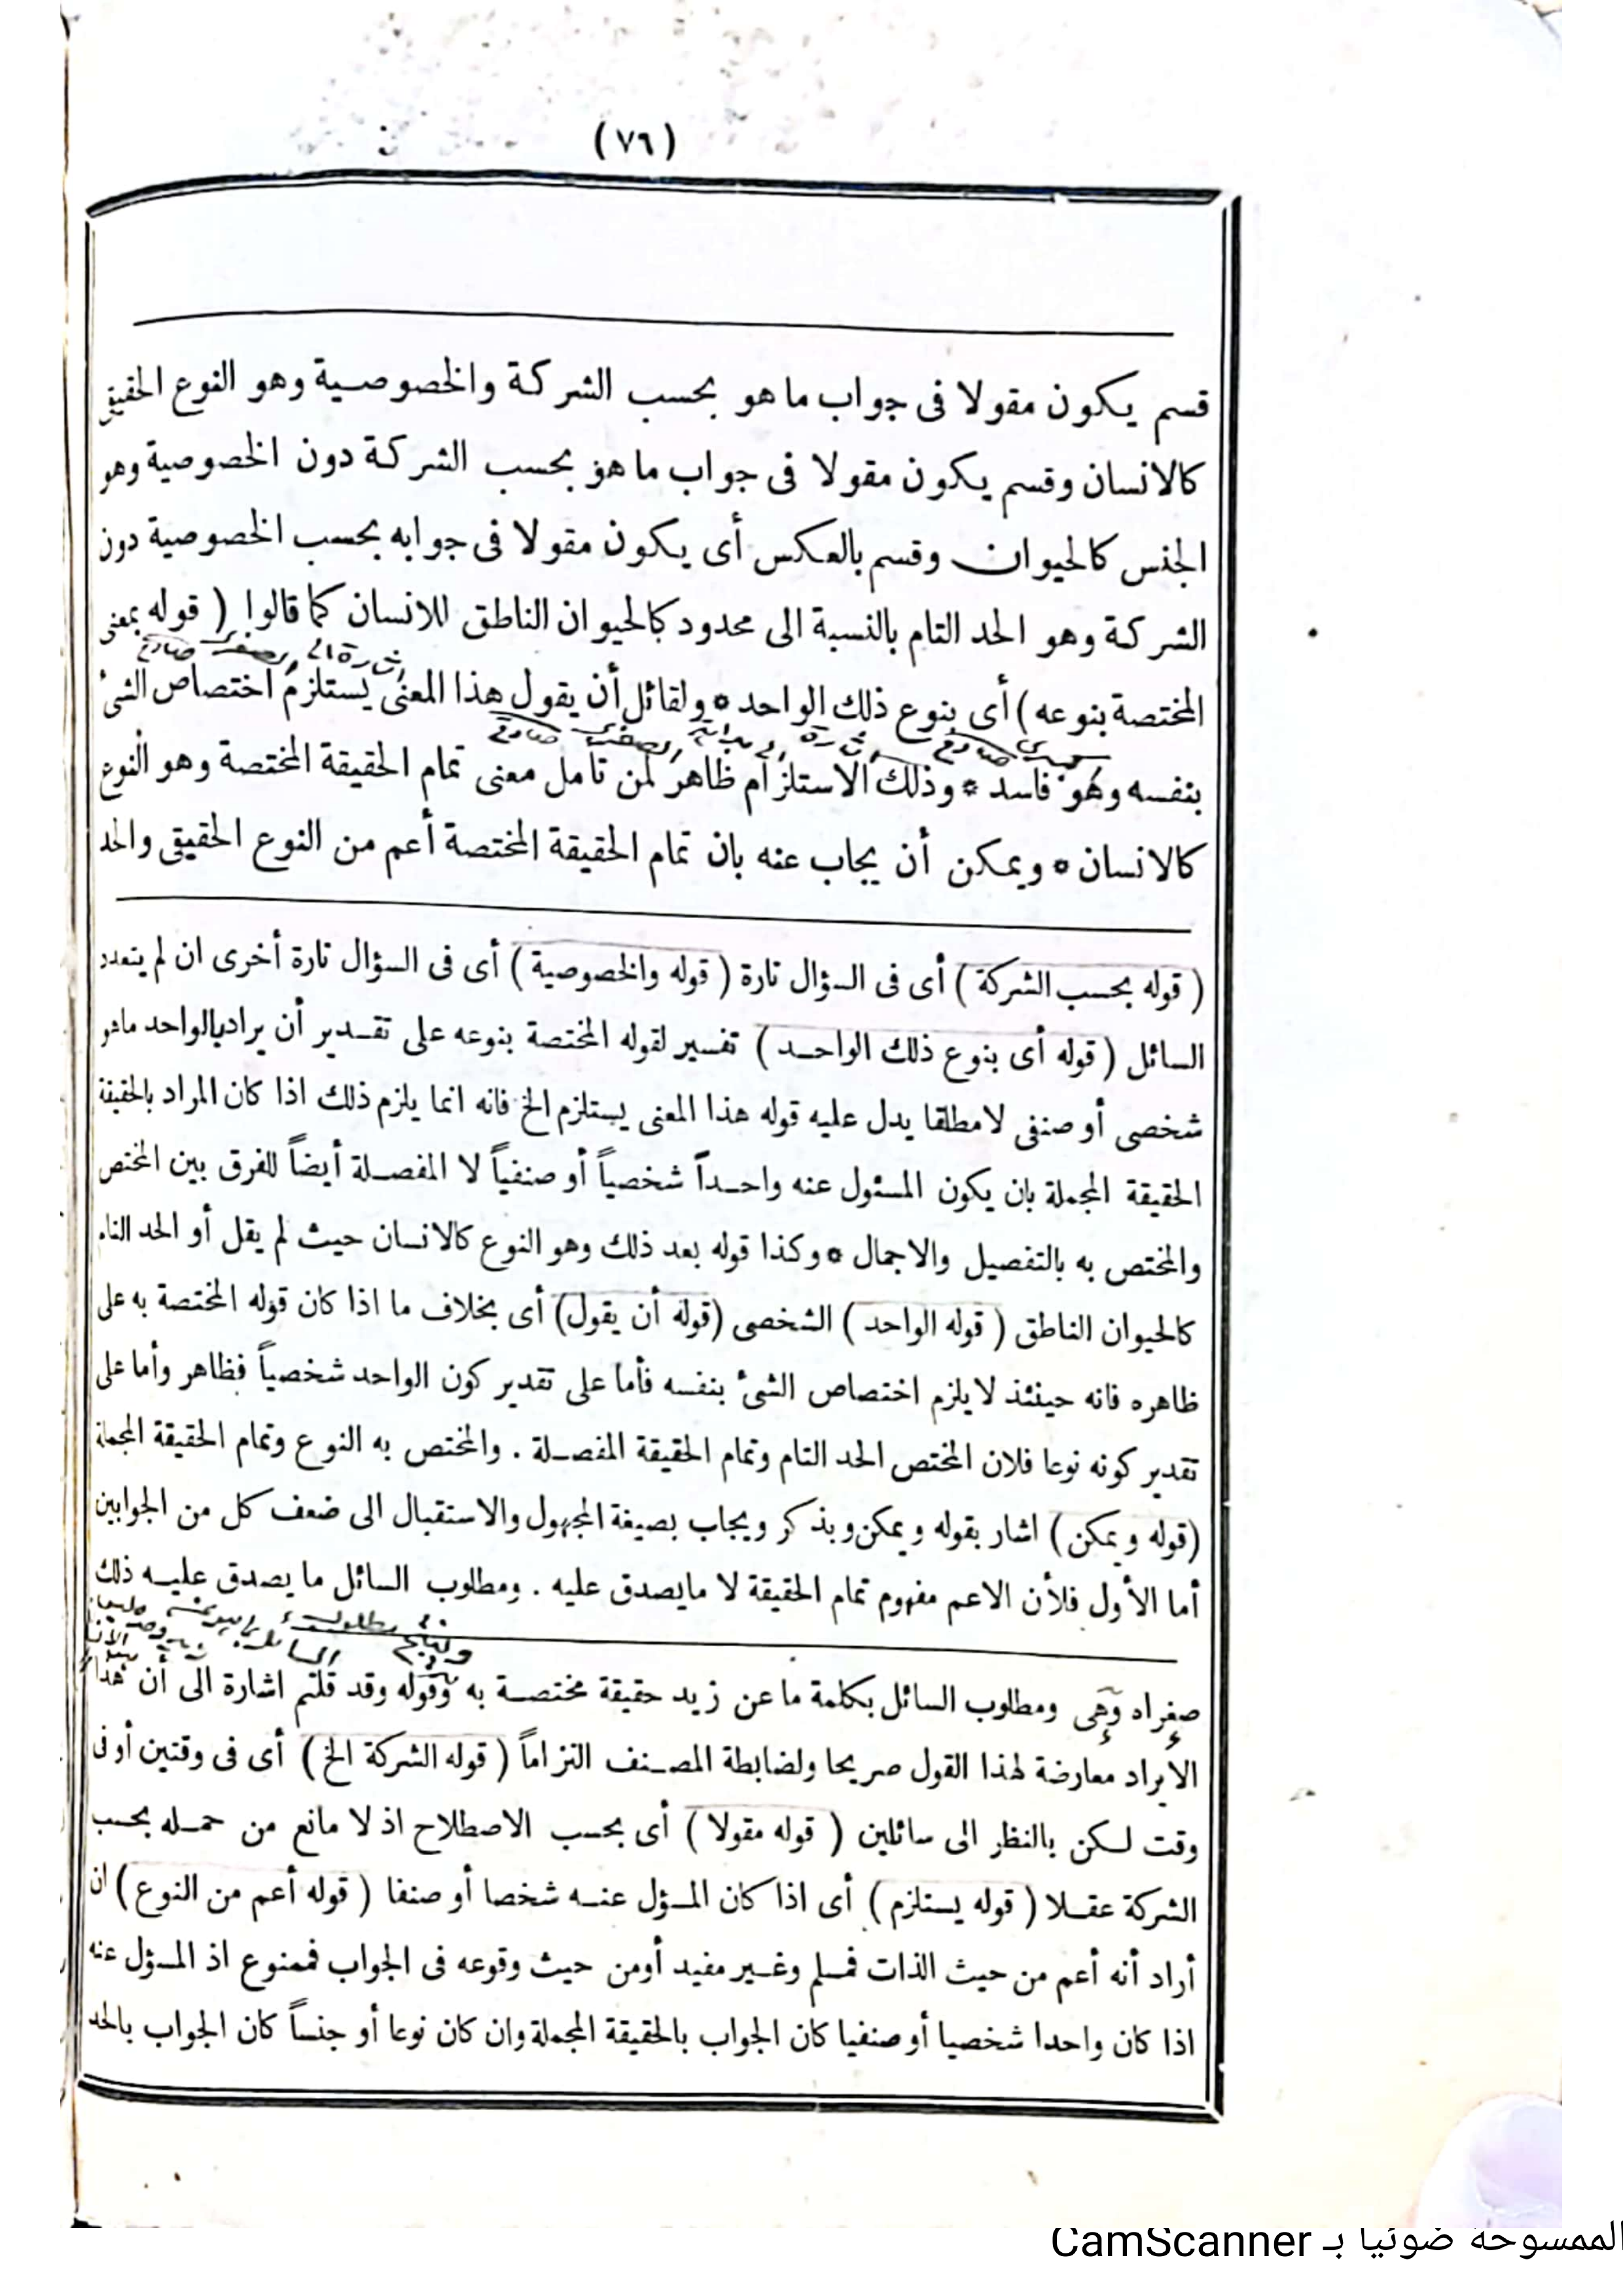 (٧٦)
قسم يكون مقولا فى جواب ما هو بحسب الشركة والخصوصية وهو النوع الحقيقى
كالانسان وقسم يكون مقولا فى جواب ما هو بحسب الشركة دون الخصوصية وهو
الجنس كالحيوان وقسم بالعكس أى يكون مقولا فى جوابه بحسب الخصوصية دون
الشركة وهو الحد التام بالنسبة الى محدود كالحيوان الناطق للانسان كما قالوا ( قوله بمعنى
المختصة بنوعه ) أى بنوع ذلك الواحد * ولقائل أن يقول هذا المعنى يستلزم اختصاص الشئ
بنفسه وهو فاسد * وذلك الاستلزام ظاهر لمن تأمل معنى تمام الحقيقة المختصة وهو النوع
كالانسان * ويمكن أن يجاب عنه بان تمام الحقيقة المختصة أعم من النوع الحقيقى والحد
( قوله بحسب الشركة ) أى فى السؤال تارة ( قوله والخصوصية ) أى فى السؤال تارة أخرى ان لم يتعدد
السائل ( قوله أى بنوع ذلك الواحد ) تفسير لقوله المختصة بنوعه على تقدير أن يراد بالواحد ماهو
شخصى أو صنفى لامطلقا يدل عليه قوله هذا المعنى يستلزم الخ فانه انما يلزم ذلك اذا كان المراد بالحقيقة
الحقيقة المجملة بان يكون المسئول عنه واحداً شخصياً أو صنفياً لا المفصلة أيضاً للفرق بين المختص
والمختص به بالتفصيل والاجمال * وكذا قوله بعد ذلك وهو النوع كالانسان حيث لم يقل أو الحد التام
كالحيوان الناطق ( قوله الواحد ) الشخصى (قوله أن يقول) أى بخلاف ما اذا كان قوله المختصة به على
ظاهره فانه حينئذ لا يلزم اختصاص الشئ بنفسه فأما على تقدير كون الواحد شخصياً فظاهر وأما على
تقدير كونه نوعا فلان المختص الحد التام وتمام الحقيقة المفصلة . والمختص به النوع وتمام الحقيقة المجملة
(قوله ويمكن) اشار بقوله ويمكن وبذكر ويجاب بصيغة المجهول والاستقبال الى ضعف كل من الجوابين
أما الأول فلأن الاعم مفهوم تمام الحقيقة لا مايصدق عليه . ومطلوب السائل ما يصدق عليه ذلك
صغراه وهى ومطلوب السائل بكلمة ما عن زيد حقيقة مختصة به وقوله وقد قلتم اشارة الى أن هذا
الايراد معارضة لهذا القول صريحا ولضابطة المصنف التزاماً ( قوله الشركة الخ ) أى فى وقتين أو فى
وقت لكن بالنظر الى سائلين ( قوله مقولا ) أى بحسب الاصطلاح اذ لا مانع من حمله بحسب
الشركة عقلا ( قوله يستلزم ) أى اذا كان المسؤل عنه شخصا أو صنفا ( قوله أعم من النوع ) ان
أراد أنه أعم من حيث الذات فمسلم وغير مفيد أومن حيث وقوعه فى الجواب فممنوع اذ المسؤل عنه
اذا كان واحدا شخصيا أو صنفيا كان الجواب بالحقيقة المجملة وان كان نوعا أو جنساً كان الجواب بالحد
الممسوحة ضوئيا بـ CamScanner